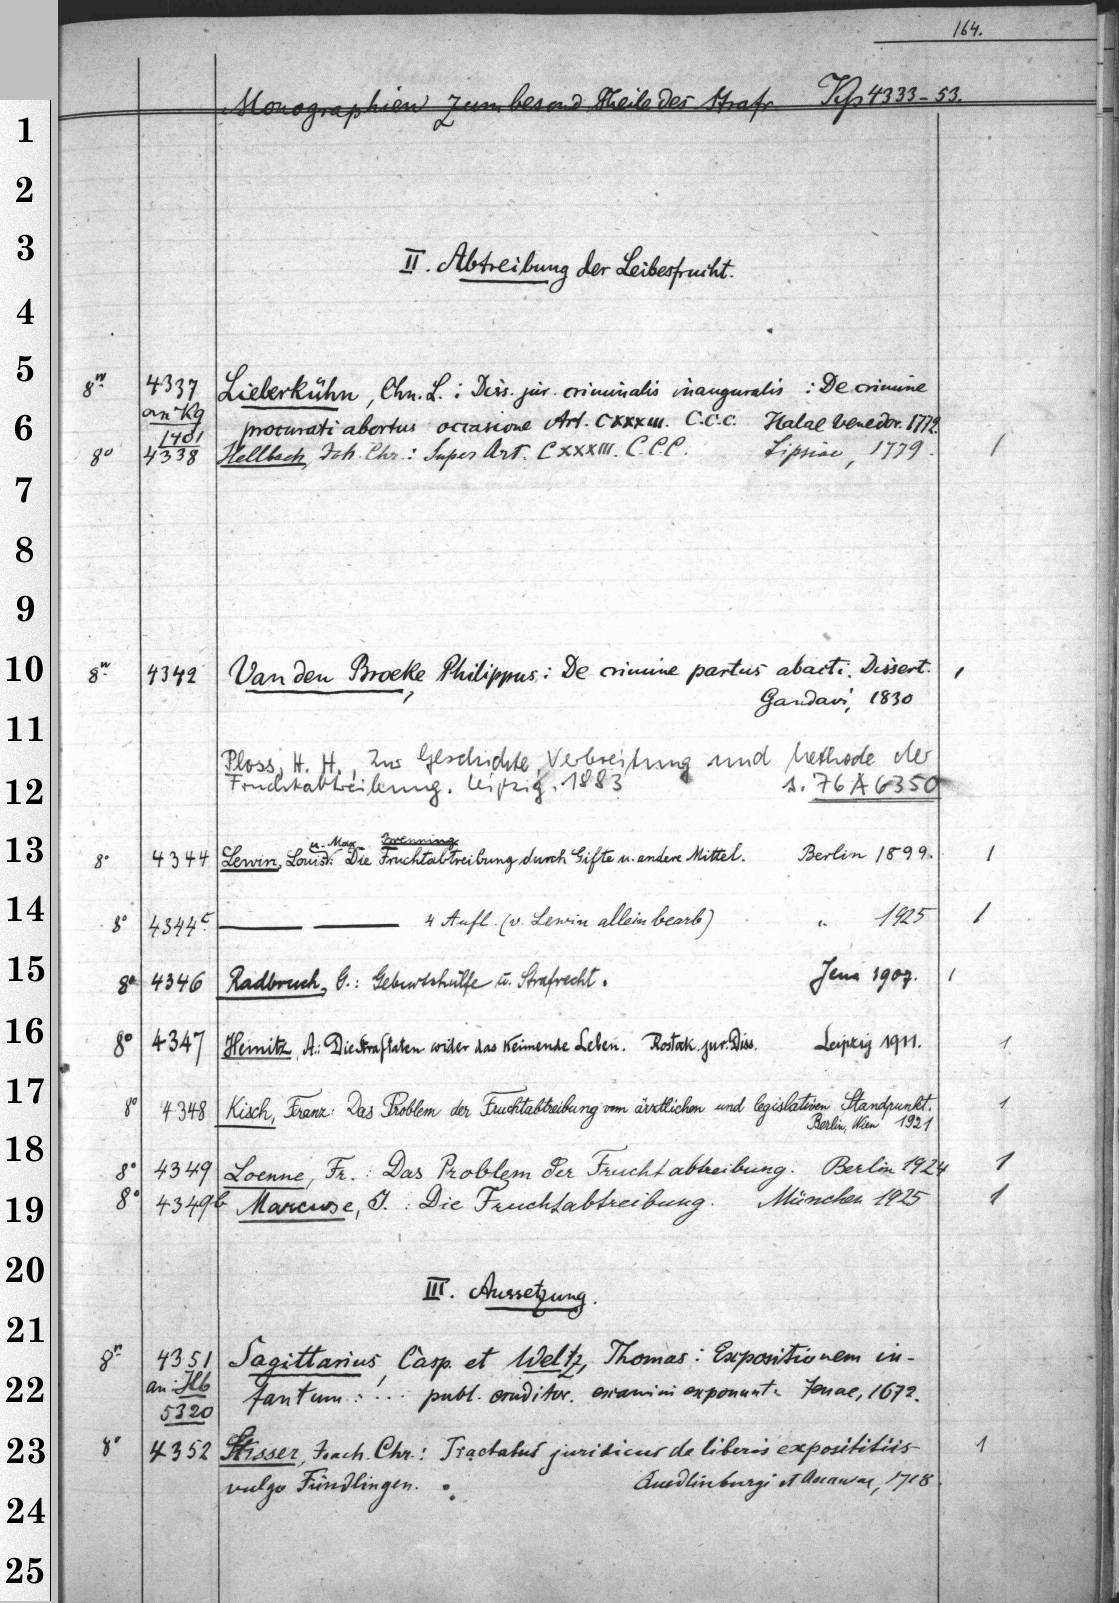 164.
Monographien zum besond. Theile des Strafr. Kp 4333-53.
1
2
3
II. Abtreibung der Leibesfrucht.
4
5
8n. 4337 Lieberkühn, Chn. L.: Diss. jur. criminalis inauguralis : De crimine
an Kg
6
procurati abortus occasione Art. CXXXIII. C.C.C. Halae Venedor. 1772.
1401
8o 4338 Hellbach, Joh. Chr.: Super Art. CXXXIII. C.C.C. Lipsiae, 1779. 1
7
8
9
10
8n. 4342 Van den Broeke, Philippus: De crimine partus abacti. Dissert. 1
Gandavi, 1830
11
Ploss, H. H., Zur Geschichte, Verbreitung und Methode der
12
Fruchtabtreibung. Leipzig. 1883 s. 76 A 6350
13
u. Max Brenning
8o 4344 Lewin, Louis: Die Fruchtabtreibung durch Gifte u. andere Mittel. Berlin 1899. 1
14
8o 4344c — — 4 Aufl. (v. Lewin allein bearb) " 1925 1
15
8o 4346 Radbruch, G.: Geburtshülfe u. Strafrecht. Jena 1907. 1
16
8o 4347 Heinitz, A.: Die Straftaten wider das keimende Leben. Rostock. jur. Diss. Leipzig 1911. 1
17
8o 4348 Kisch, Franz: Das Problem der Fruchtabtreibung vom ärztlichen und legislativen Standpunkt. 1
Berlin, Wien 1921
18
8o 4349 Loenne, Fr.: Das Problem der Fruchtabtreibung. Berlin 1924 1
19
8o 4349b Marcuse, J.: Die Fruchtabtreibung. München 1925 1
20
III. Aussetzung.
21
8n. 4351 Sagittarius, Casp. et Weltz, Thomas: Expositionem in-
22
an Hb
fantum : ... publ. eruditor. examini exponunt. Jenae, 1672.
5320
23
8o 4352 Stisser, Joach. Chr.: Tractatus juridicus de liberis exposititiis 1
vulgo Fündlingen. Quedlinburgi et Ascaniae, 1718.
24
25